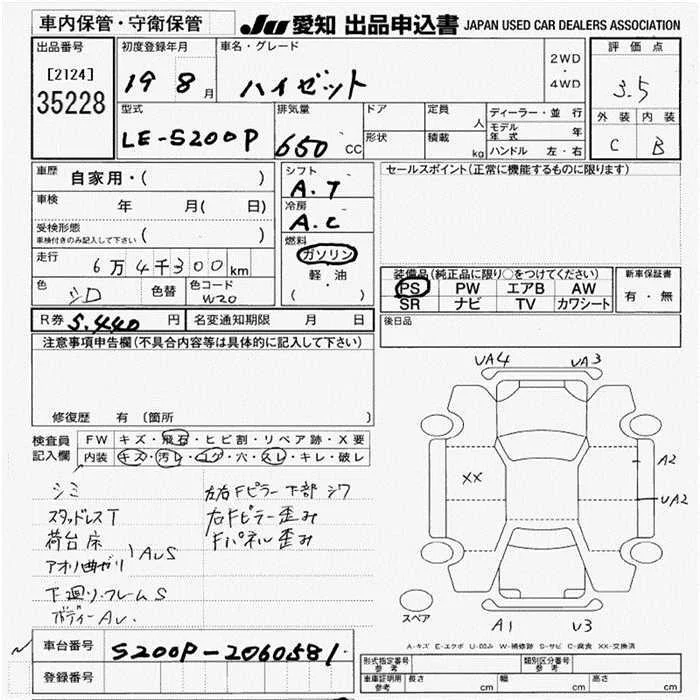 車内保管・守衛保管
JU 愛知 出品申込書 JAPAN USED CAR DEALERS ASSOCIATION
出品番号
[2124]
35228
初度登録年月
19 8月
車名・グレード
ハイゼット
2WD
・
4WD
評価点
3.5
外装 内装
C B
型式
LE-S200P
排気量
660 CC
ドア
形状
定員
人
積載
kg
ディーラー・並 行
モデル年式 年
ハンドル 左・右
車歴 自家用・( )
車検 年 月( 日)
受検形態
車検付きのみ記入して下さい ( )
走行
6万4千300km
色 シロ 色替 色コード W20
シフト
A.T
冷房
A.C
燃料
ガソリン
軽・油
( )
セールスポイント(正常に機能するものに限ります)
装備品(純正品に限り○をつけてください)
PS PW エアB AW
SR ナビ TV カワシート
新車保証書
有・無
R券 5.440円 名変通知期限 月 日
後日品
注意事項申告欄(不具合内容等は具体的に記入して下さい)
修復歴 有 (箇所 )
検査員記入欄
FW キズ・飛石・ヒビ割・リペア跡・X要
内装 キズ・汚レ・コゲ・穴・スレ・キレ・破レ
シミ
スタッドレスT
荷台床
アオリ曲ガリ AUS
下廻リ・フレームS
ボディーAU.
左右Fピラー下部シワ
右Fピラー歪み
Fパネル歪み
UA4 UA3
XX
A2
UA2
A1 U3
スペア
A-キズ E-エクボ U-凹み W-補修跡 S-サビ C-腐食 XX-交換済
車台番号 S200P-2060581
登録番号
形式指定番号
参考
類別区分番号
参考
車庫証明用
参考
長さ cm 幅 cm 高さ cm